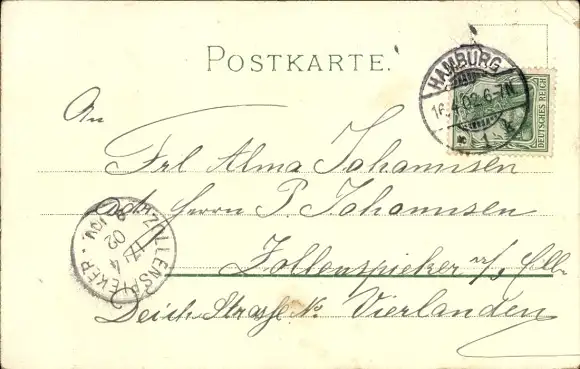 POSTKARTE.
HAMBURG
16.4.02.6-7N.
* 1 k
DEUTSCHES REICH
An
Frl Alma Johannsen
adr Herrn P. Johannsen
ZOLLENSPIEKER
17 4 02
8-9V.
Zollenspieker a/s. Elbe
Deich Straße No. Vierlanden